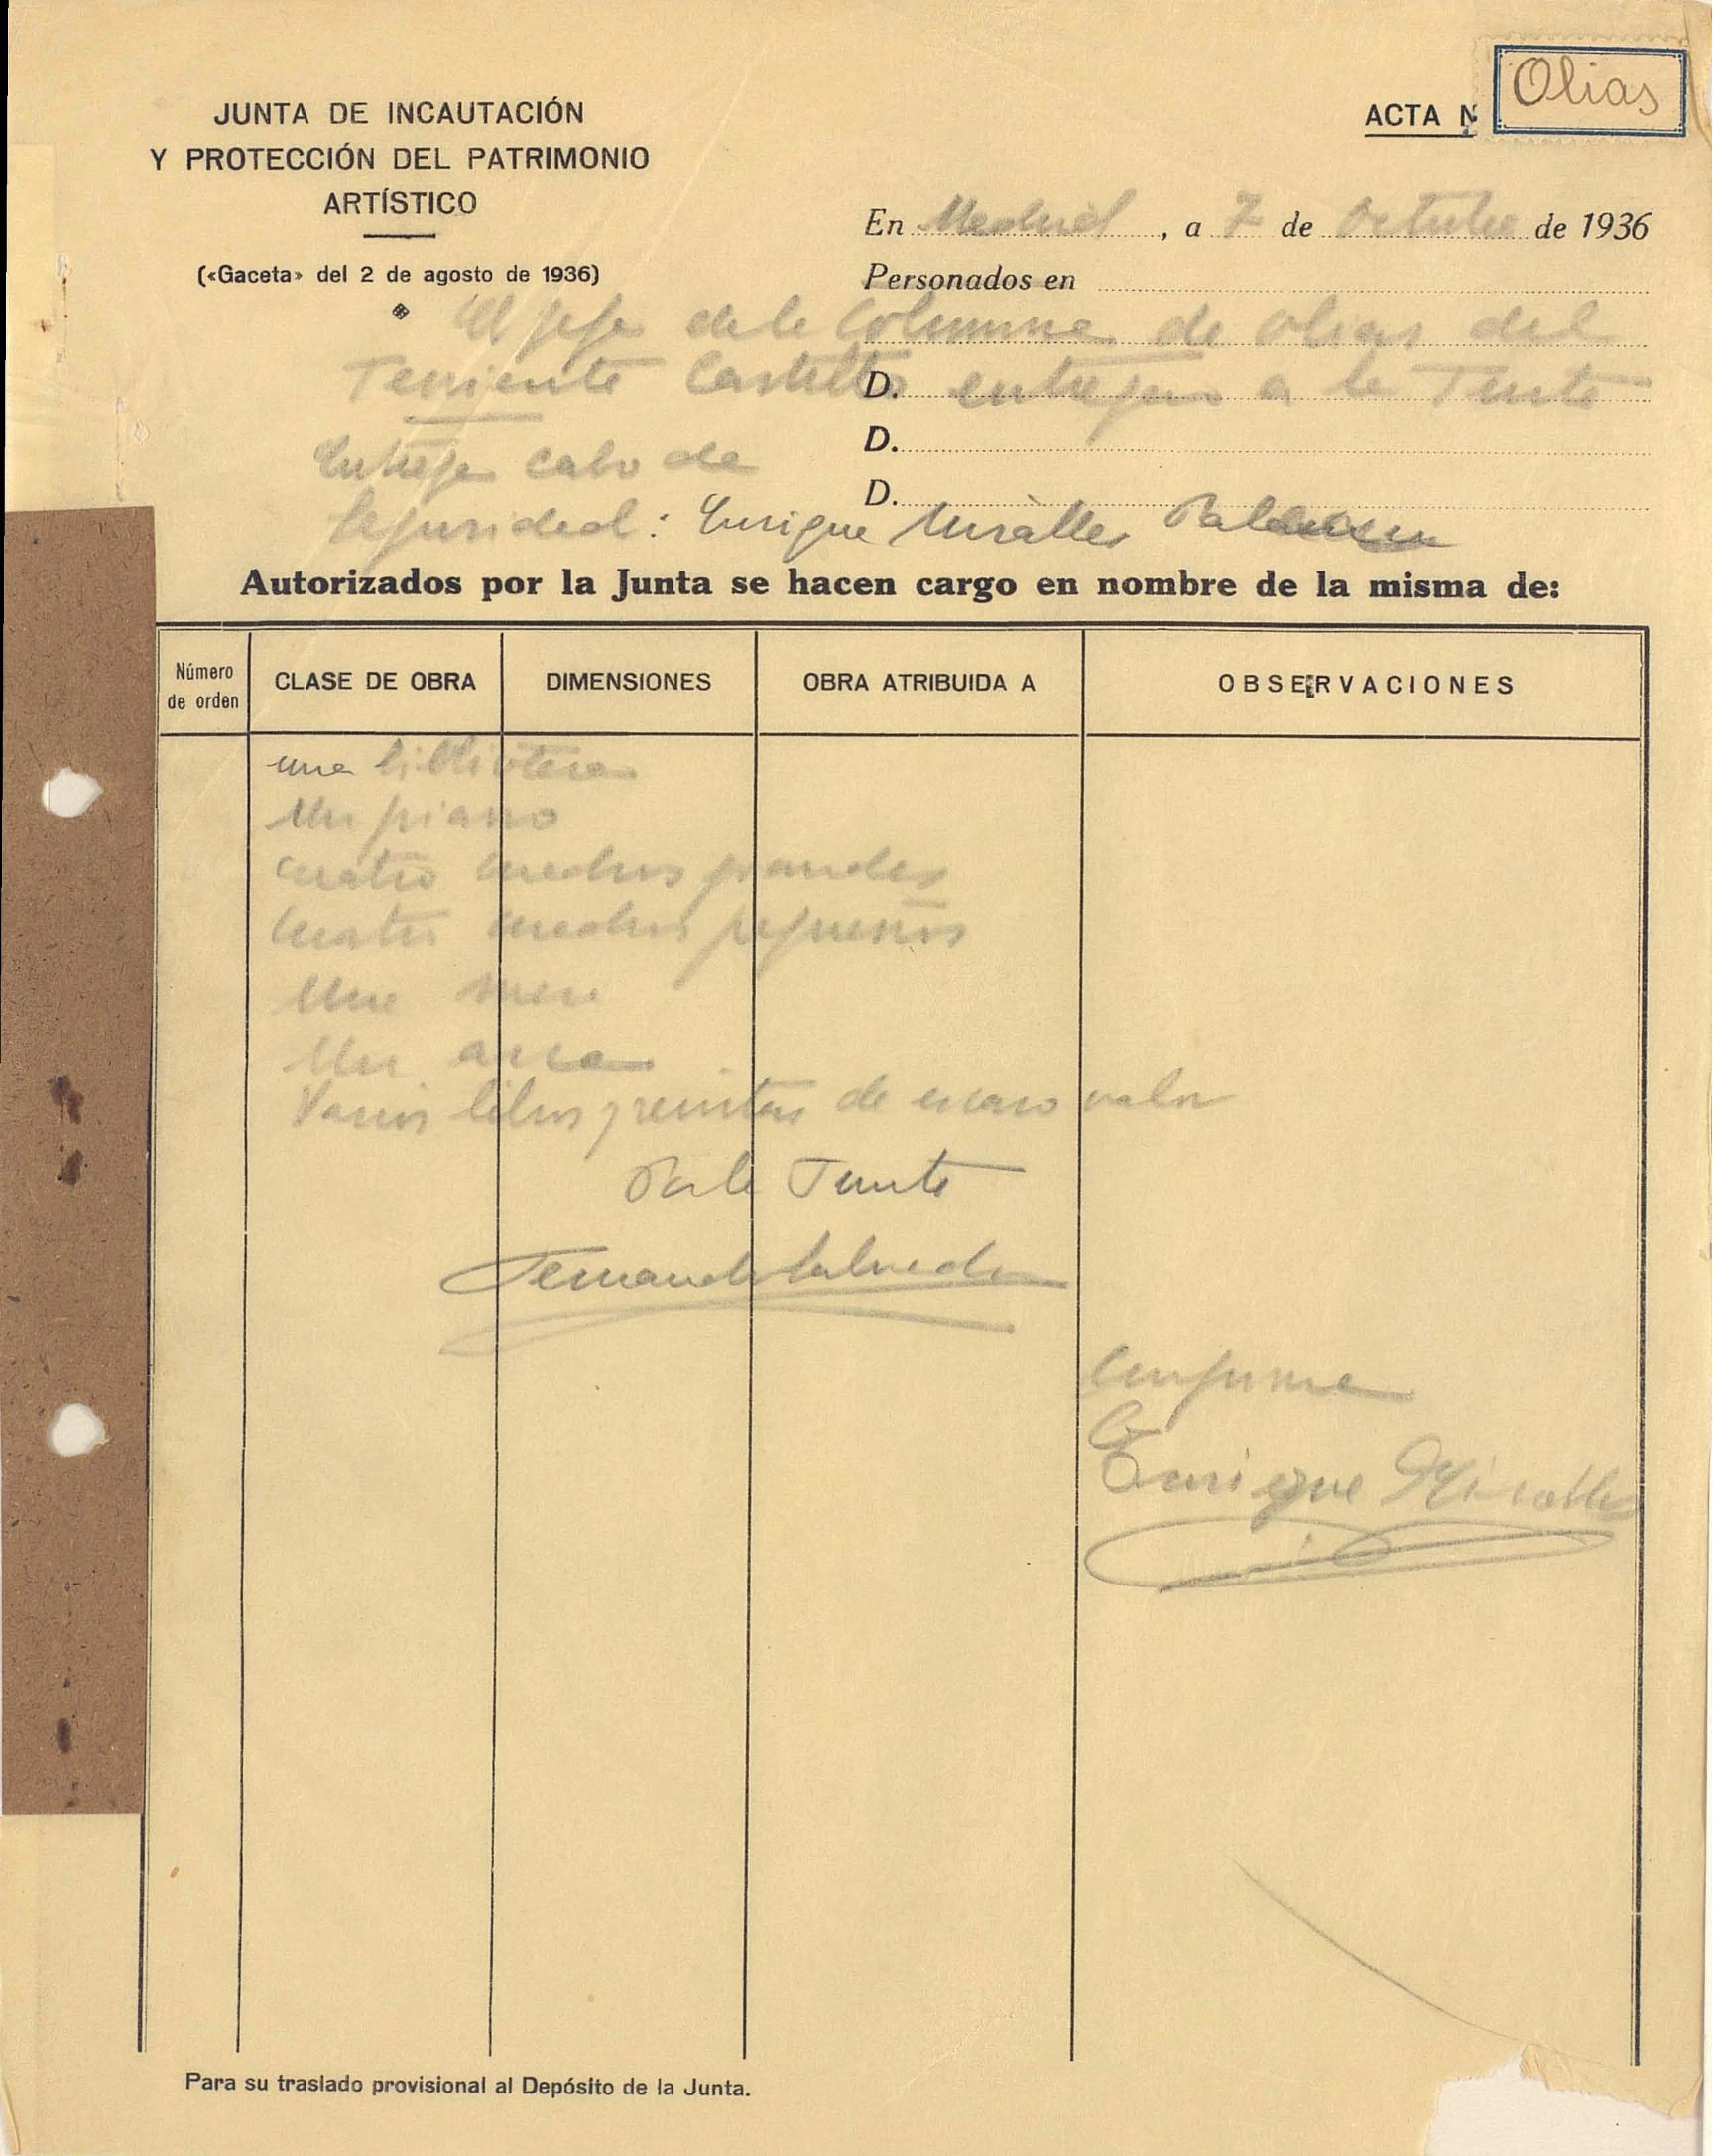 JUNTA DE INCAUTACIÓN
Y PROTECCIÓN DEL PATRIMONIO
ARTÍSTICO
(«Gaceta» del 2 de agosto de 1936)
ACTA N
Olias
En Madrid, a 7 de Octubre de 1936
Personados en
El Jefe de la Columna de Olias del
Teniente Castillo D. entregan a la Junta
Entrega cabo de
D.
D.
Seguridad: Enrique Miralles
Autorizados por la Junta se hacen cargo en nombre de la misma de:
Número de orden
CLASE DE OBRA
DIMENSIONES
OBRA ATRIBUIDA A
OBSERVACIONES
una biblioteca
Un piano
cuatro cuadros grandes
cuatro cuadros pequeños
Una mesa
Un arca
Varios libros y revistas de escaso valor
Por la Junta
Fernando
Conforme
Enrique Miralles
Para su traslado provisional al Depósito de la Junta.